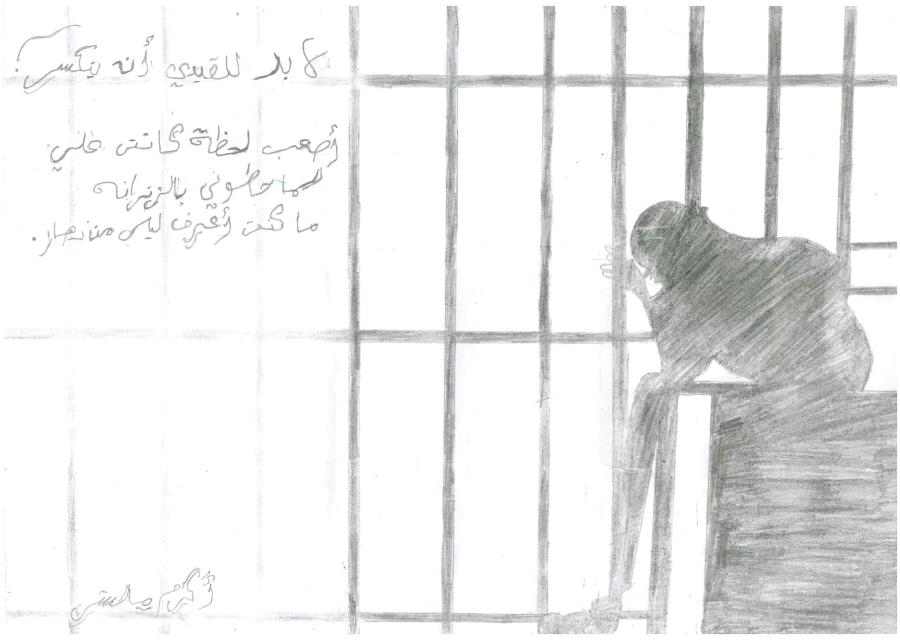 لا بد للقيدي أن ينكسر!
أصعب لحظة كانت علي
لما حطوني بالزنزانه
ما كنت أعرف ليس
أكرم